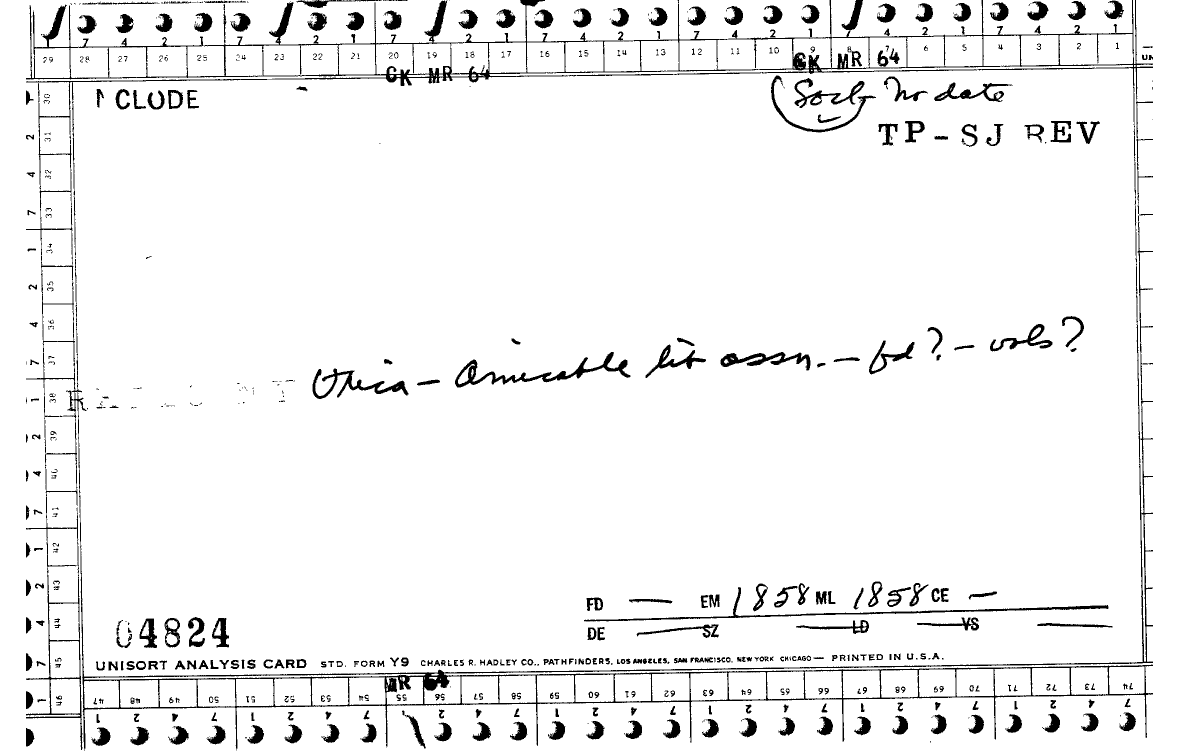 7 4 2 1 7 4 2 1 7 4 2 1 7 4 2 1 7 4 2 1 7 4 2 1 7 4 2 1
29 28 27 26 25 24 23 22 21 20 19 18 17 16 15 14 13 12 11 10 9 8 7 6 5 4 3 2 1
GK MR 64 GK MR 64
CLUDE
no date
TP-SJ REV
Utica - Amicable lit assn. - fd? - vols?
FD — EM 1858 ML 1858 CE —
DE — SZ — LD — VS —
04824
UNISORT ANALYSIS CARD STD. FORM Y9 CHARLES R. HADLEY CO., PATHFINDERS, LOS ANGELES, SAN FRANCISCO, NEW YORK CHICAGO — PRINTED IN U.S.A.
MR 64
47 48 49 50 51 52 53 54 55 56 57 58 59 60 61 62 63 64 65 66 67 68 69 70 71 72 73 74
1 2 4 7 1 2 4 7 2 4 7 1 2 4 7 1 2 4 7 1 2 4 7 1 2 4 7
30 31 32 33 34 35 36 37 38 39 40 41 42 43 44 45 46